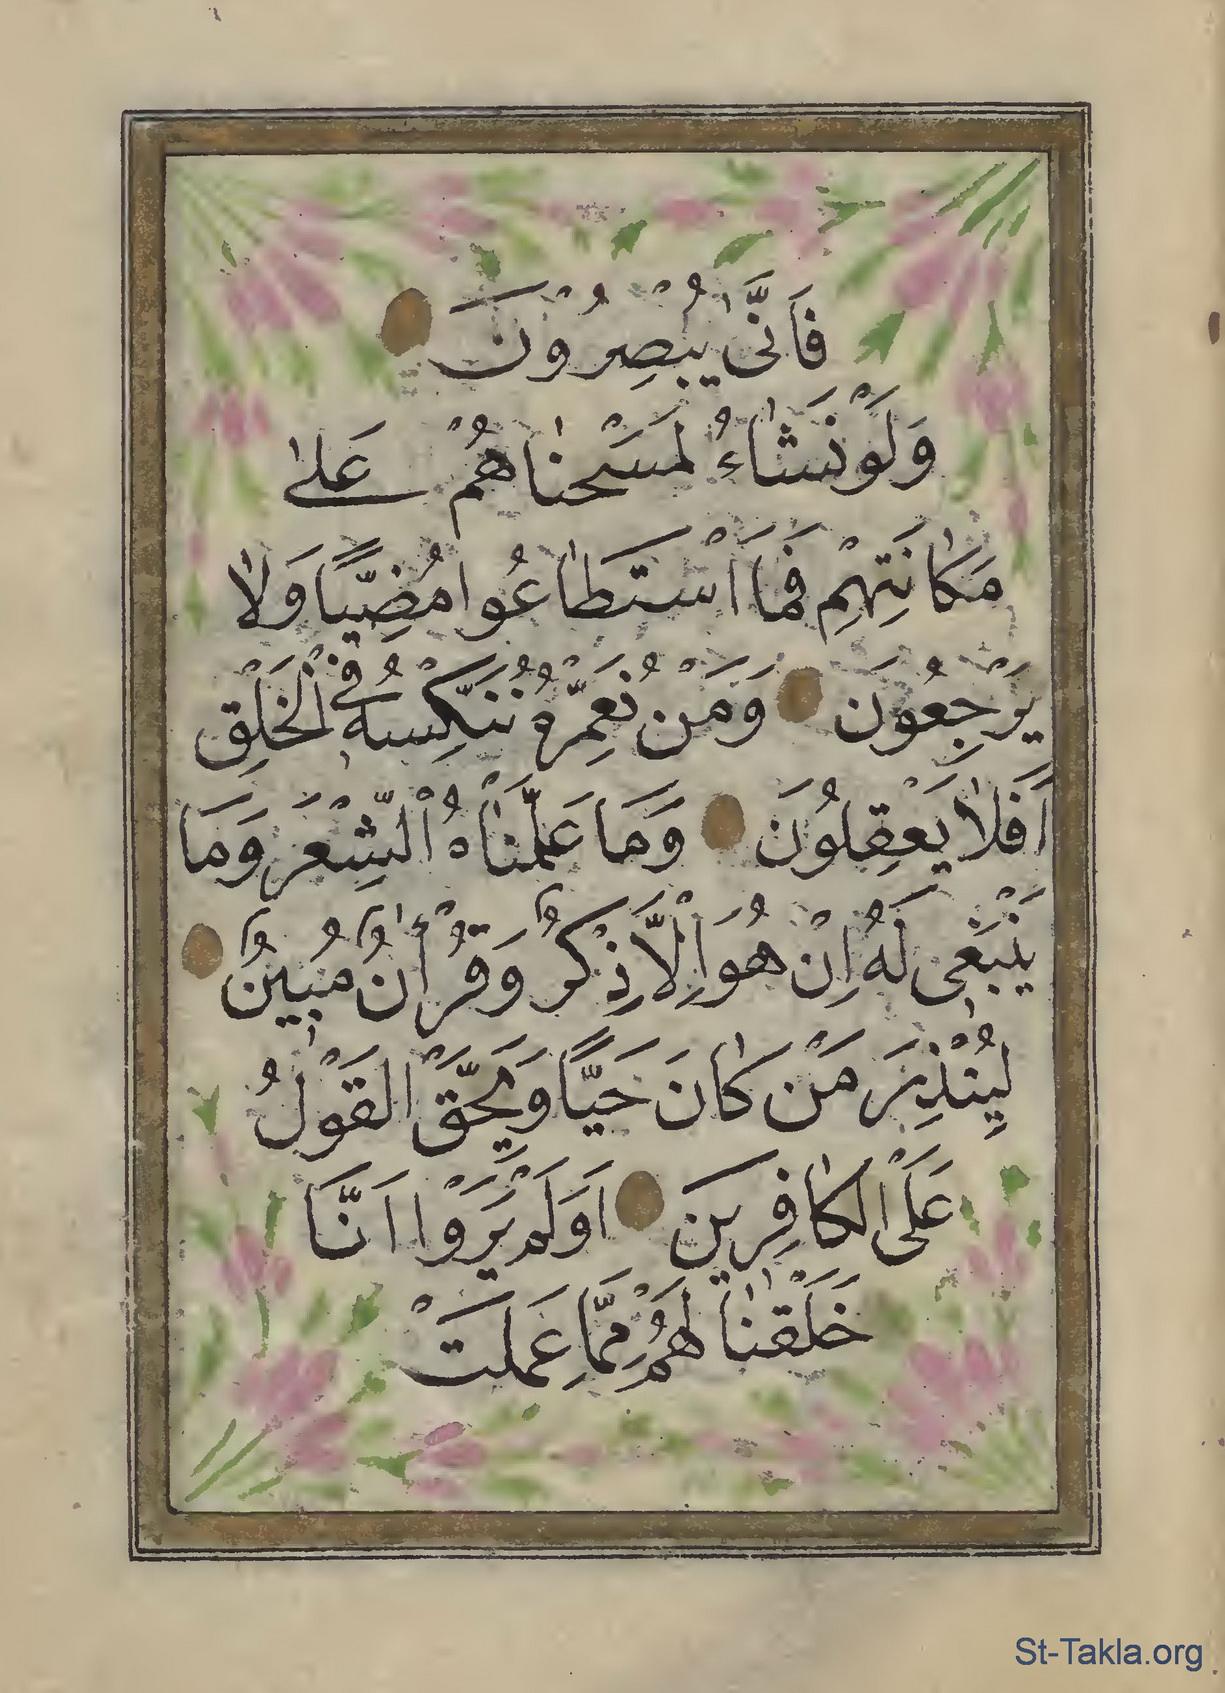 فَاَنّٰى يُبْصِرُوْنَ
وَلَوْ نَشَاءُ لَمَسَخْنَاهُمْ عَلٰى
مَكَانَتِهِمْ فَمَا اسْتَطَاعُوا مُضِيًّا وَلَا
يَرْجِعُونَ وَمَنْ نُعَمِّرْهُ نُنَكِّسْهُ فِى الْخَلْقِ
اَفَلَا يَعْقِلُونَ وَمَا عَلَّمْنَاهُ الشِّعْرَ وَمَا
يَنْبَغِى لَهُ اِنْ هُوَ اِلَّا ذِكْرٌ وَقُرْاٰنٌ مُبِينٌ
لِيُنْذِرَ مَنْ كَانَ حَيًّا وَيَحِقَّ الْقَوْلُ
عَلَى الْكَافِرِينَ اَوَلَمْ يَرَوْا اَنَّا
خَلَقْنَا لَهُمْ مِمَّا عَمِلَتْ
St-Takla.org